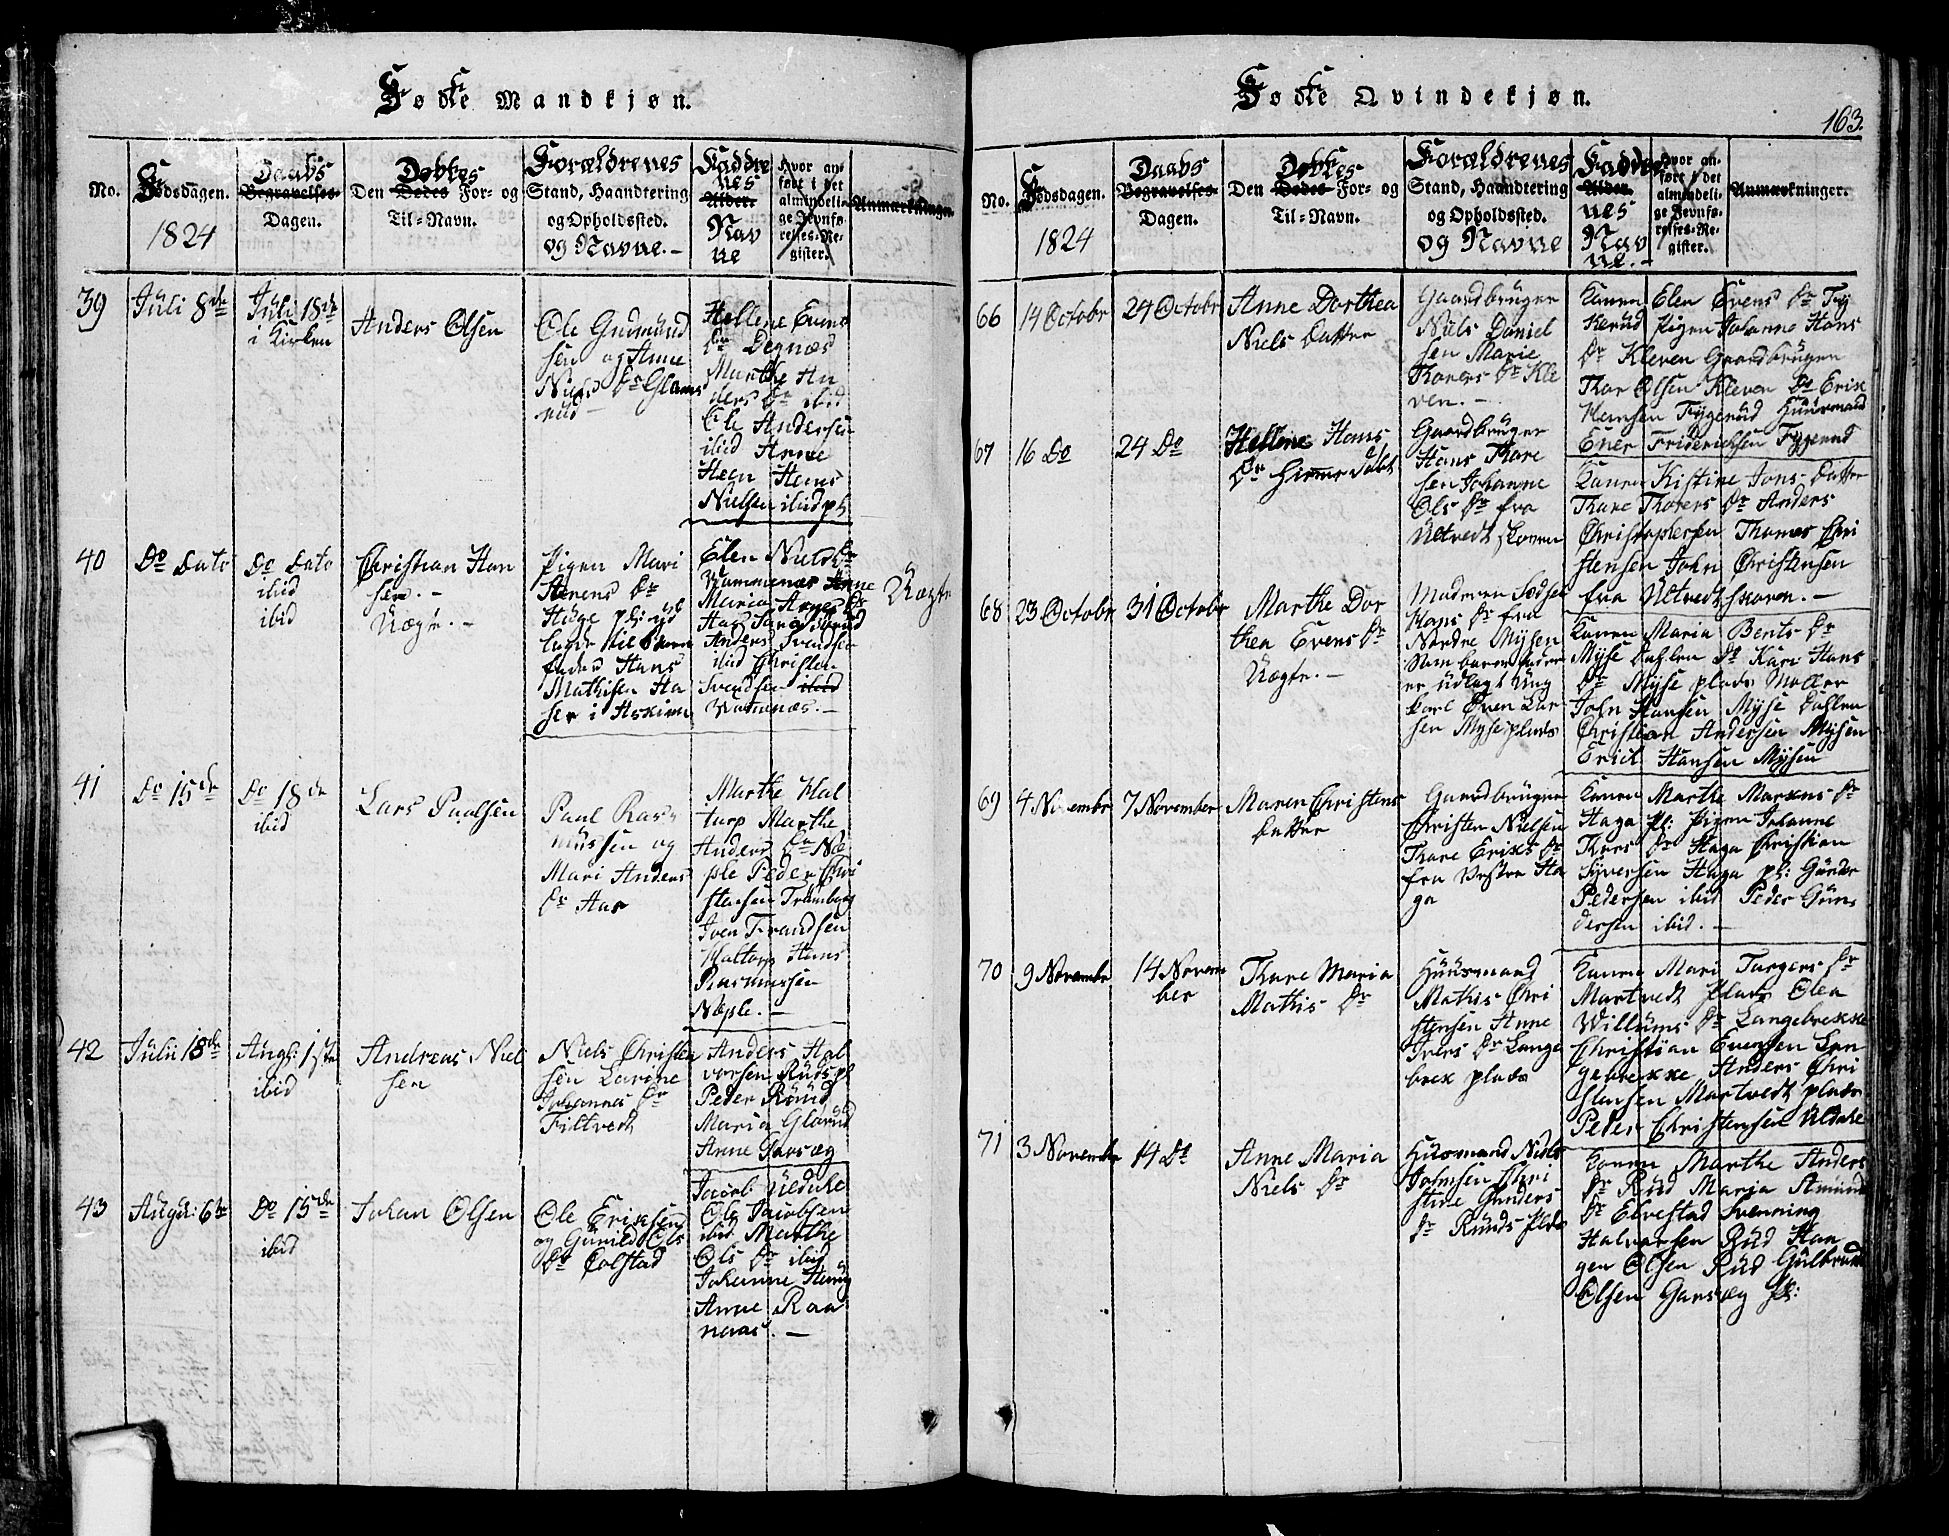 Fødte Mandkjøn.
No.
Fødsdagen.
1824
Daabs
Begravelses-
Dagen.
Døbtes
Den Dødes For- og
Til-Navn.
Forældrenes
Stand, Haandtering
og Opholdssted.
og Navne.-
Faddre
nes
Alder.
Nav
ne
Hvor an-
ført i det
almindeli-
ge Jevnfø-
relses-Re-
gister.
Anmærkninger
39
Juli 8de
Juli 18de
i Kirken
Anders Olsen
Ole Gudmund
sen og Anne
Niels Dr Glams
rud
Hellene Evens
Dr Degnæs
Marthe An
ders Dr ibid
Ole Andersen
ibid Anne
Heen Hans
Nielsen ibid pl:
40
Do Dato
Do Dato
ibid
ibid
Christian Han
sen.-
Uægte.-
Pigen Mari
Dr
pl: ud
lagde til Barne
fader Hans
Mathisen Ha
ser i Askim
Elen Niels Dr
Vammenæs Anne
Maria
Anders Svendsen
ibid Christen
Svendsen ibid
Vamenæs.-
Uægte
41
Do 15de
Do 18de
ibid
Lars Paulsen
Paul Ras
mussen og
Mari Anders
Dr Aas
Marthe Hal
torp Marthe
Anders Dr Næ
ple Peder Chri
stensen Trømborg
Iven Frandsen
Haltorp Hans
Rasmussen
Næple.-
42
Julii 18de
Augs: 1ste
ibid
Andreas Niel
sen
Niels Christen
sen Larine
Johannes Dr
Filtvedt
Anders Hal
vorsen Ruds pl
Peder Røud
Maria Glørud
Anne Garsæg
43
Augu: 6te
Do 15de
ibid
Johan Olsen
Ole Erixsen
og Gunild Ols
Dr Colstad
Jacob Uldale
Ole Jacobsen
ibid Marthe
Ols Dr ibid
Johanne
Anne Raa
naas.-
Fødte Qvindekjøn.
163.
No.
Fødsdagen.
1824
Daabs
Begravelses-
Dagen.
Døbtes
Den Dødes For- og
Til-Navn.
Forældrenes
Stand, Haandtering
og Opholdssted.
og Navne
Faddre
Alder.
nes
Nav
ne.-
Hvor an-
ført i det
almindeli-
ge Jevnfø-
relses-Re-
gister.
Anmærkninger.
66
14 Octobr
24 Octobr
Anne Dorthea
Niels Datter
Gaardbruger
Niels Daniel
sen Marie
Thorers Dr Kle
ven.-
Konen Elen Evens Dr Tyg
Kerud Pigen Johanne Hans
Dr Kleven Gaardbruger
Thor Olsen Kleven Do Erik
Hansen Tygerud Huusmand
Ener Friderichsen Tygerud
67
16 Do
24 Do
Hellene Hans
Dr
Gaardbruger
Hans Thore
sen Johanne
Ols Dr fra
Utvedt skoven
Konen Kistine Jons Datter
Thare Thorers Dr Anders
Christophersen Thomas Chri
stensen John Christensen
fra Utvedt skoven.-
68
23 Octobr
31 Octobr
Marthe Dor
thea Evens Dr
Uægte.-
Moderen
Hans Dr fra
Nordre Mysen
Som barnefader
er udlagt Ung
karl Even Lar
sen Myse plads
Konen Maria Bents Dr
Myse Dahlen Do Kari Hans
Dr Myse plads Møller
John Hansen Myse Dahlen
Christian Andersen Mysen
Erich Hansen Mysen
69
4 Novembr
7 November
Maren Christens
Datter
Gaardbruger
Christen Nielsen
Thare Erixs Dr
fra Vestre Ha
ga
Konen Marthe Markus Dr
Haga Pl: Pigen Johanne
Thors Dr Haga Christian
Syversen Haga pl: Gunder
Pedersen ibid Peder Gun
dersen ibid.-
70
9 Novembr
14 Novem
ber
Thare Maria
Mathis Dr
Huusmand
Mathis Chri
stensen Anne
Ivers Dr Lange
brek plads
Konen Mari Torgers Dr
Martvedt Plads Olea
Willums Dr Langebrekke
Christian Evensen Lan
gebrekke Anders Chri
stensen Martvedt plads
Peder Christensen Uldale
71
3 Novembr
14 Do
Anne Maria
Niels Dr
Huusmand Niels
Johnsen Chri
stine Gunders
Dr Ruuds Plds
Konen Marthe Anders
Dr Rud Maria Amund
Dr Elvestad Svenning
Halvorsen Rud Han
gen Olsen Rud Gulbrand
Olsen Garsæg Pl: